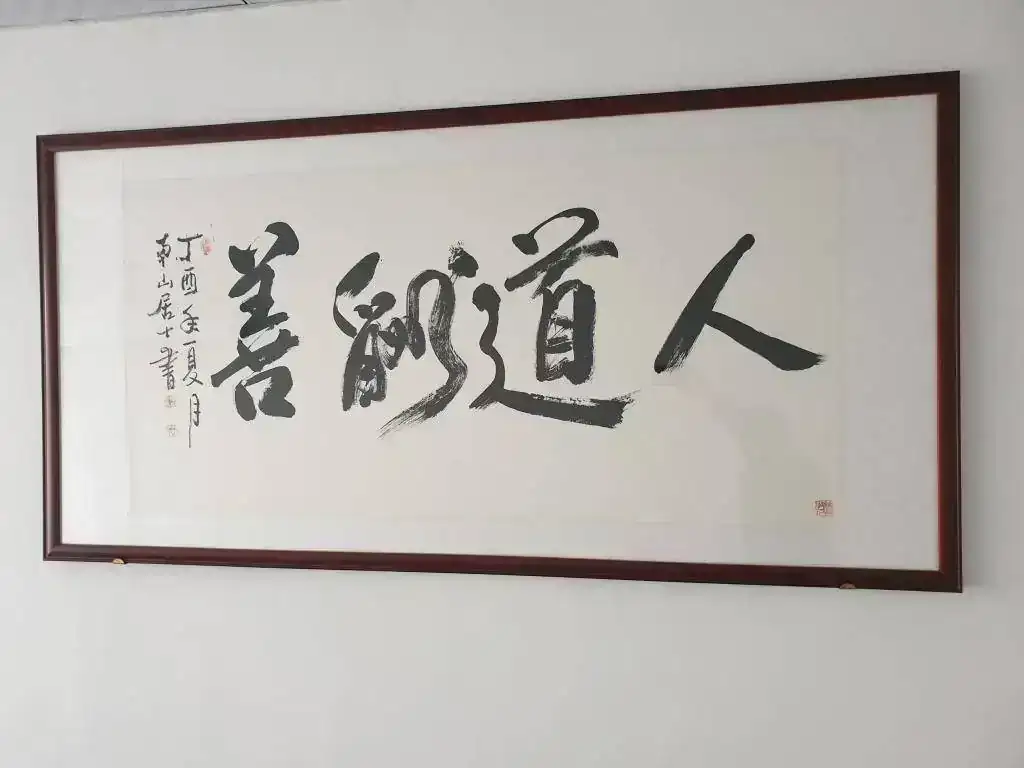 人道酬善
丁酉年夏月
東山居士書